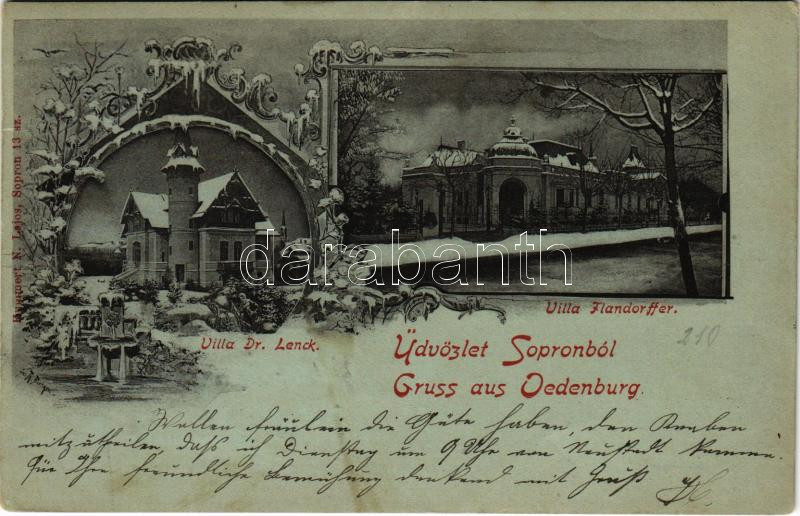 Villa Flandorffer.
Villa Dr. Lenck.
210
Üdvözlet Sopronból
Gruss aus Oedenburg.
Wollen fräulein die Güte haben, den Knaben
mitzutheilen, dass ich Dienstag um 9 Uhr von Neustadt komme.
für Ihre freundliche Bemühung dankend mit Gruß
N. Lajos, Sopron 13 sz.
darabanth